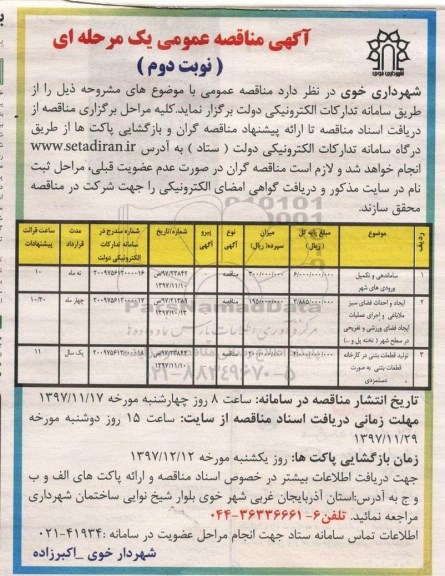 آگهی مناقصه عمومی یک مرحله ای
( نوبت دوم )
شهرداری خوی
شهرداری خوی در نظر دارد مناقصه عمومی با موضوع های مشروحه ذیل را از
طریق سامانه تدارکات الکترونیکی دولت برگزار نماید.کلیه مراحل برگزاری مناقصه از
دریافت اسناد مناقصه تا ارائه پیشنهاد مناقصه گران و بازگشایی پاکت ها از طریق
درگاه سامانه تدارکات الکترونیکی دولت ( ستاد ) به آدرس www.setadiran.ir
انجام خواهد شد و لازم است مناقصه گران در صورت عدم عضویت قبلی، مراحل ثبت
نام در سایت مذکور و دریافت گواهی امضای الکترونیکی را جهت شرکت در مناقصه
محقق سازند.
ردیف موضوع مبلغ پایه کل (ریال) میزان سپرده( ریال) نوع آگهی پیرو آگهی شماره/تاریخ شماره مندرج در سامانه تدارکات الکترونیکی دولت مدت قرارداد ساعت قرائت پیشنهادات
۱ ساماندهی و تکمیل ورودی های شهر ۶/۰۰۰/۰۰۰/۰۰۰ ۳۰۰/۰۰۰/۰۰۰ مناقصه ۱۳۹۷/۱۱/۱۰ نه ماه ۱۰
۲ ایجاد و احداث فضای سبز ملاباغی و اجرای عملیات ایجاد فضای ورزشی و تفریحی در سطح شهر ( تخته پل و ...) مناقصه چهار ماه ۱۰/۳۰
۳ تولید قطعات بتنی در کارخانه قطعات بتنی به صورت دستمزدی مناقصه یک سال ۱۱
ParsNamadData
۰۲۱-۸۸۳۴۹۶۷۰-۵
تاریخ انتشار مناقصه در سامانه: ساعت ۸ روز چهارشنبه مورخه ۱۳۹۷/۱۱/۱۷
مهلت زمانی دریافت اسناد مناقصه از سایت: ساعت ۱۵ روز دوشنبه مورخه
۱۳۹۷/۱۱/۲۹
زمان بازگشایی پاکت ها: روز یکشنبه مورخه ۱۳۹۷/۱۲/۱۲
جهت دریافت اطلاعات بیشتر در خصوص اسناد مناقصه و ارائه پاکت های الف و ب
و ج به آدرس:استان آذربایجان غربی شهر خوی بلوار شیخ نوایی ساختمان شهرداری
مراجعه نمائید. تلفن۶- ۳۶۳۳۶۶۶۱-۰۴۴
اطلاعات تماس سامانه ستاد جهت انجام مراحل عضویت در سامانه :۴۱۹۳۴-۰۲۱
شهردار خوی _اکبرزاده